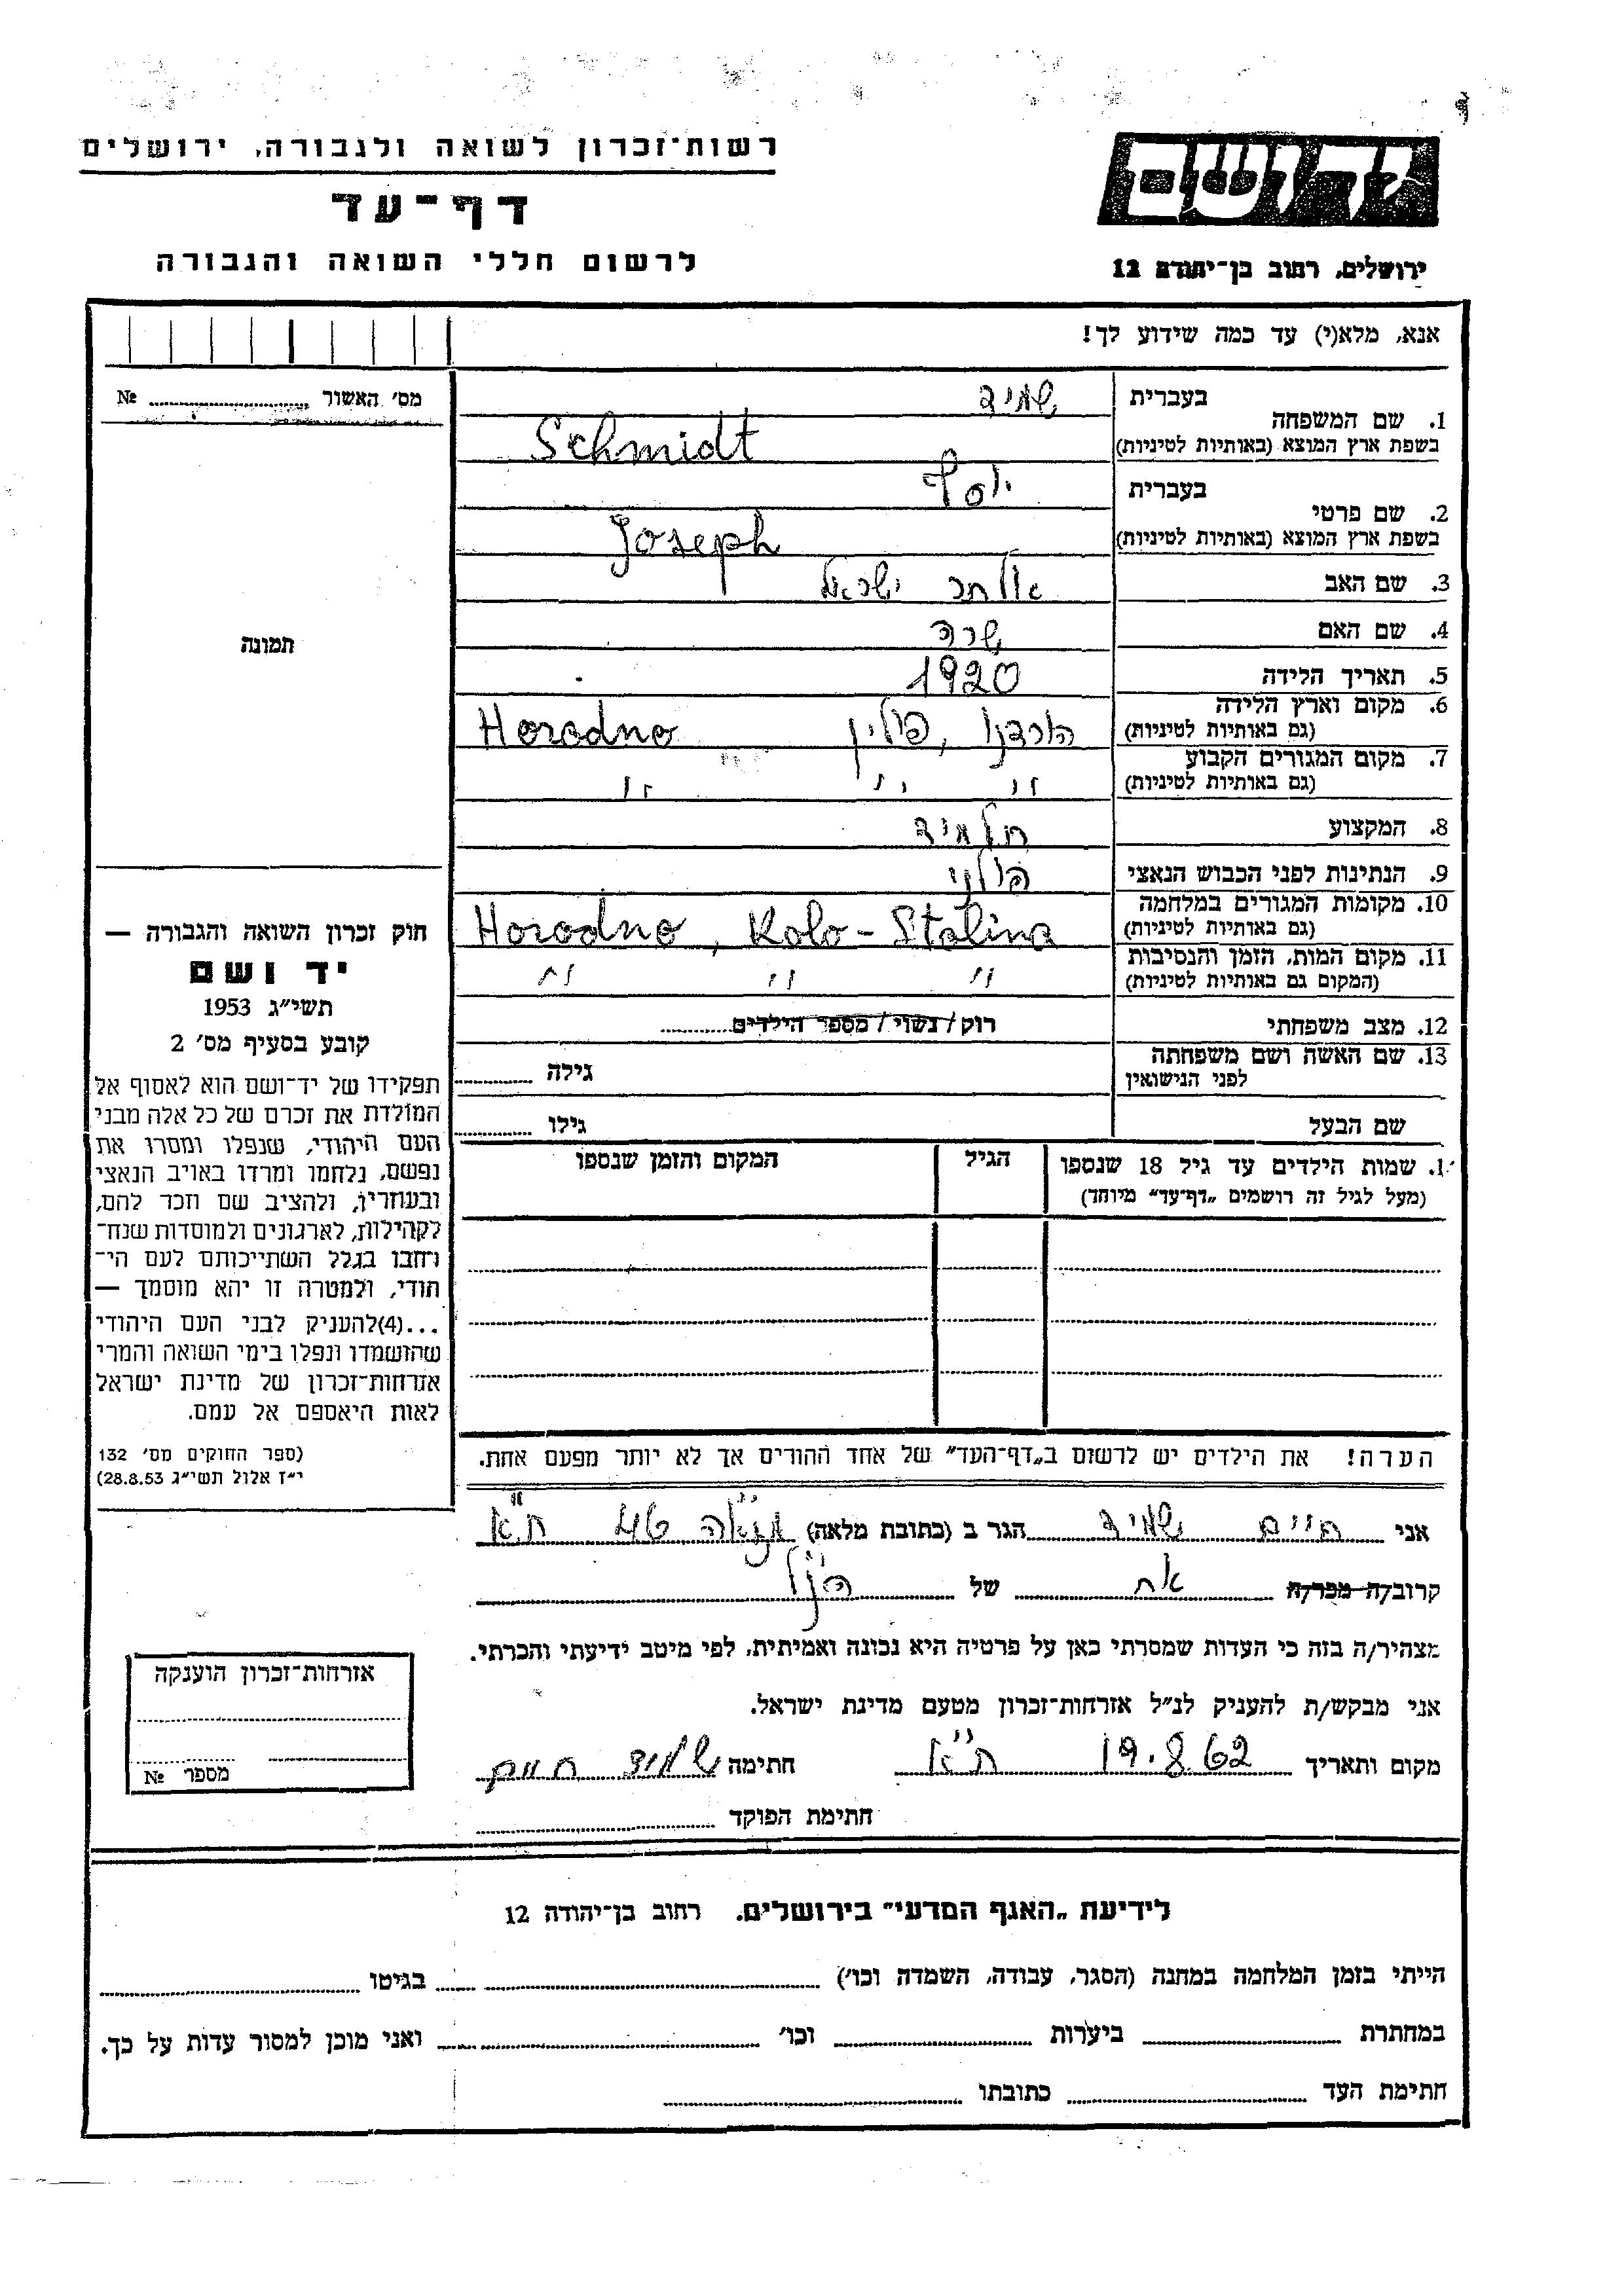 רשות־זכרון לשואה ולגבורה, ירושלים
דף־עד
לרשום חללי השואה והגבורה
יד ושם
ירושלים, רחוב בן־יהודה 12
אנא, מלא(י) עד כמה שידוע לך!
מס׳ האשור № ........
תמונה
בעברית שמיד
1. שם המשפחה
בשפת ארץ המוצא (באותיות לטיניות) Schmidt
בעברית יוסף
2. שם פרטי
בשפת ארץ המוצא (באותיות לטיניות) Joseph
3. שם האב ישראל
4. שם האם שרה
5. תאריך הלידה 1920
6. מקום וארץ הלידה
(גם באותיות לטיניות) הורדנו, פולין Horodno
7. מקום המגורים הקבוע
(גם באותיות לטיניות) " " "
8. המקצוע תלמיד
9. הנתינות לפני הכבוש הנאצי פולני
10. מקומות המגורים במלחמה
(גם באותיות לטיניות) Horodno, Kolo-Stalina
11. מקום המות, הזמן והנסיבות
(המקום גם באותיות לטיניות) " " "
12. מצב משפחתי רוק/נשוי/מספר הילדים........
13. שם האשה ושם משפחתה
לפני הנישואין גילה ........
שם הבעל גילו ........
חוק זכרון השואה והגבורה —
יד ושם
תשי״ג 1953
קובע בסעיף מס׳ 2
תפקידו של יד־ושם הוא לאסוף אל
המולדת את זכרם של כל אלה מבני
העם היהודי, שנפלו ומסרו את
נפשם, נלחמו ומרדו באויב הנאצי
ובעוזריו, ולהציב שם וזכר להם,
לקהילות, לארגונים ולמוסדות שנח־
רבו בגלל השתייכותם לעם הי־
הודי, ולמטרה זו יהא מוסמך —
...(4)להעניק לבני העם היהודי
שהושמדו ונפלו בימי השואה והמרי
אזרחות־זכרון של מדינת ישראל
לאות היאספם אל עמם.
(ספר החוקים מס׳ 132
י״ז אלול תשי״ג 28.8.53)
1. שמות הילדים עד גיל 18 שנספו
(מעל לגיל זה רושמים „דף־עד״ מיוחד)
הגיל
המקום והזמן שנספו
הערה! את הילדים יש לרשום ב„דף־העד״ של אחד ההורים אך לא יותר מפעם אחת.
אני חיים שמיד הגר ב (כתובת מלאה) 46 ת״א
קרוב/ה מכר/ה אח של הנ״ל
מצהיר/ה בזה כי העדות שמסרתי כאן על פרטיה היא נכונה ואמיתית, לפי מיטב ידיעתי והכרתי.
אני מבקש/ת להעניק לנ״ל אזרחות־זכרון מטעם מדינת ישראל.
מקום ותאריך 19.8.62 ת״א חתימה שמיד חיים
חתימת הפוקד ........
אזרחות־זכרון הוענקה
מספר №
לידיעת „האגף המדעי״ בירושלים, רחוב בן־יהודה 12
הייתי בזמן המלחמה במחנה (הסגר, עבודה, השמדה וכו׳) ........ בגיטו ........
במחתרת ........ ביערות ........ וכו׳ ........ ואני מוכן למסור עדות על כך.
חתימת העד ........ כתובתו ........